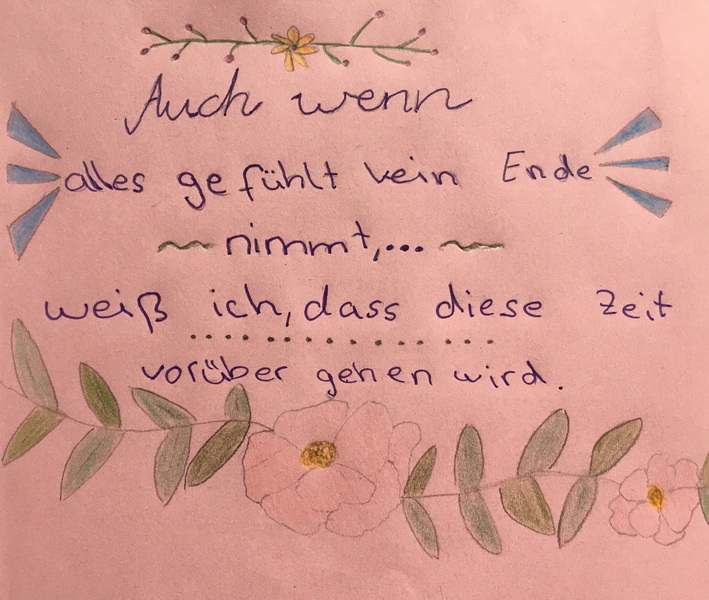 Auch wenn
alles gefühlt kein Ende
nimmt,...
weiß ich, dass diese Zeit
vorüber gehen wird.